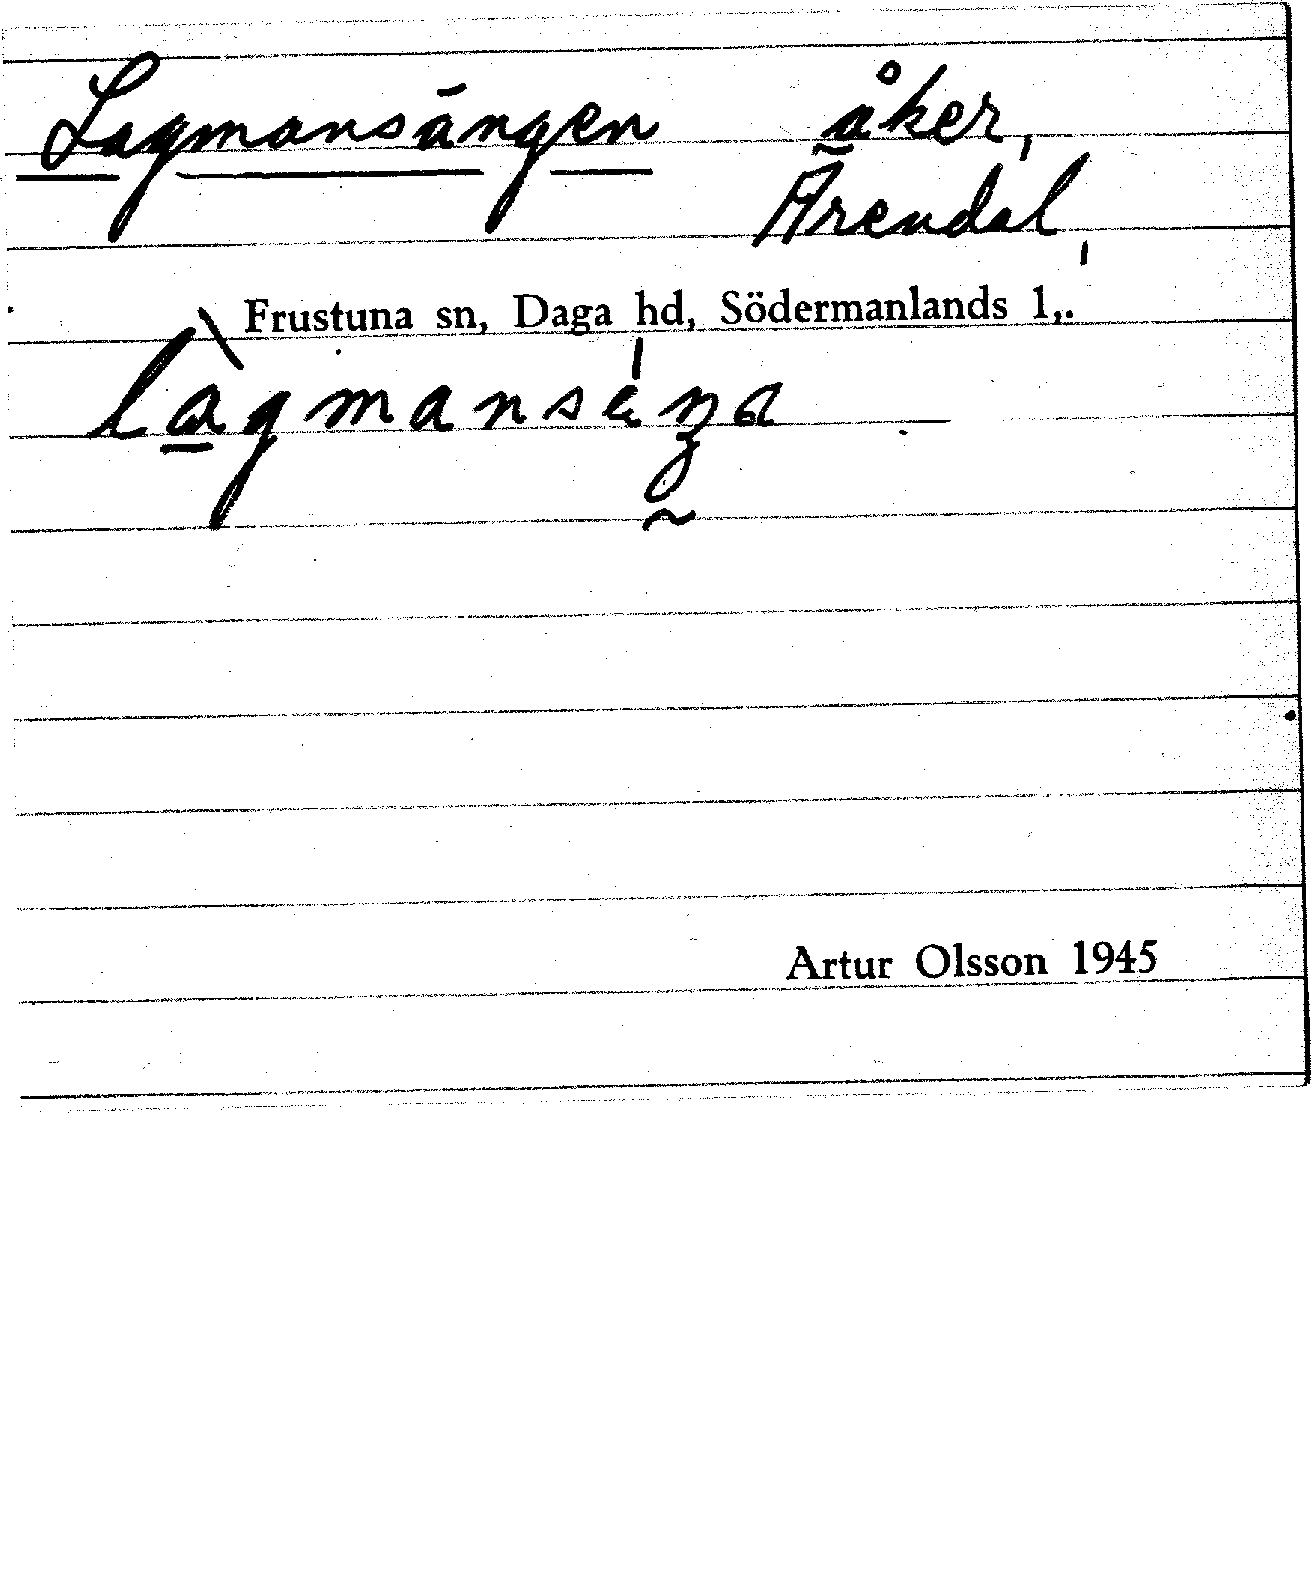 Lagmansängen åker,
Ärendal,
Frustuna sn, Daga hd, Södermanlands l,.
Artur Olsson 1945